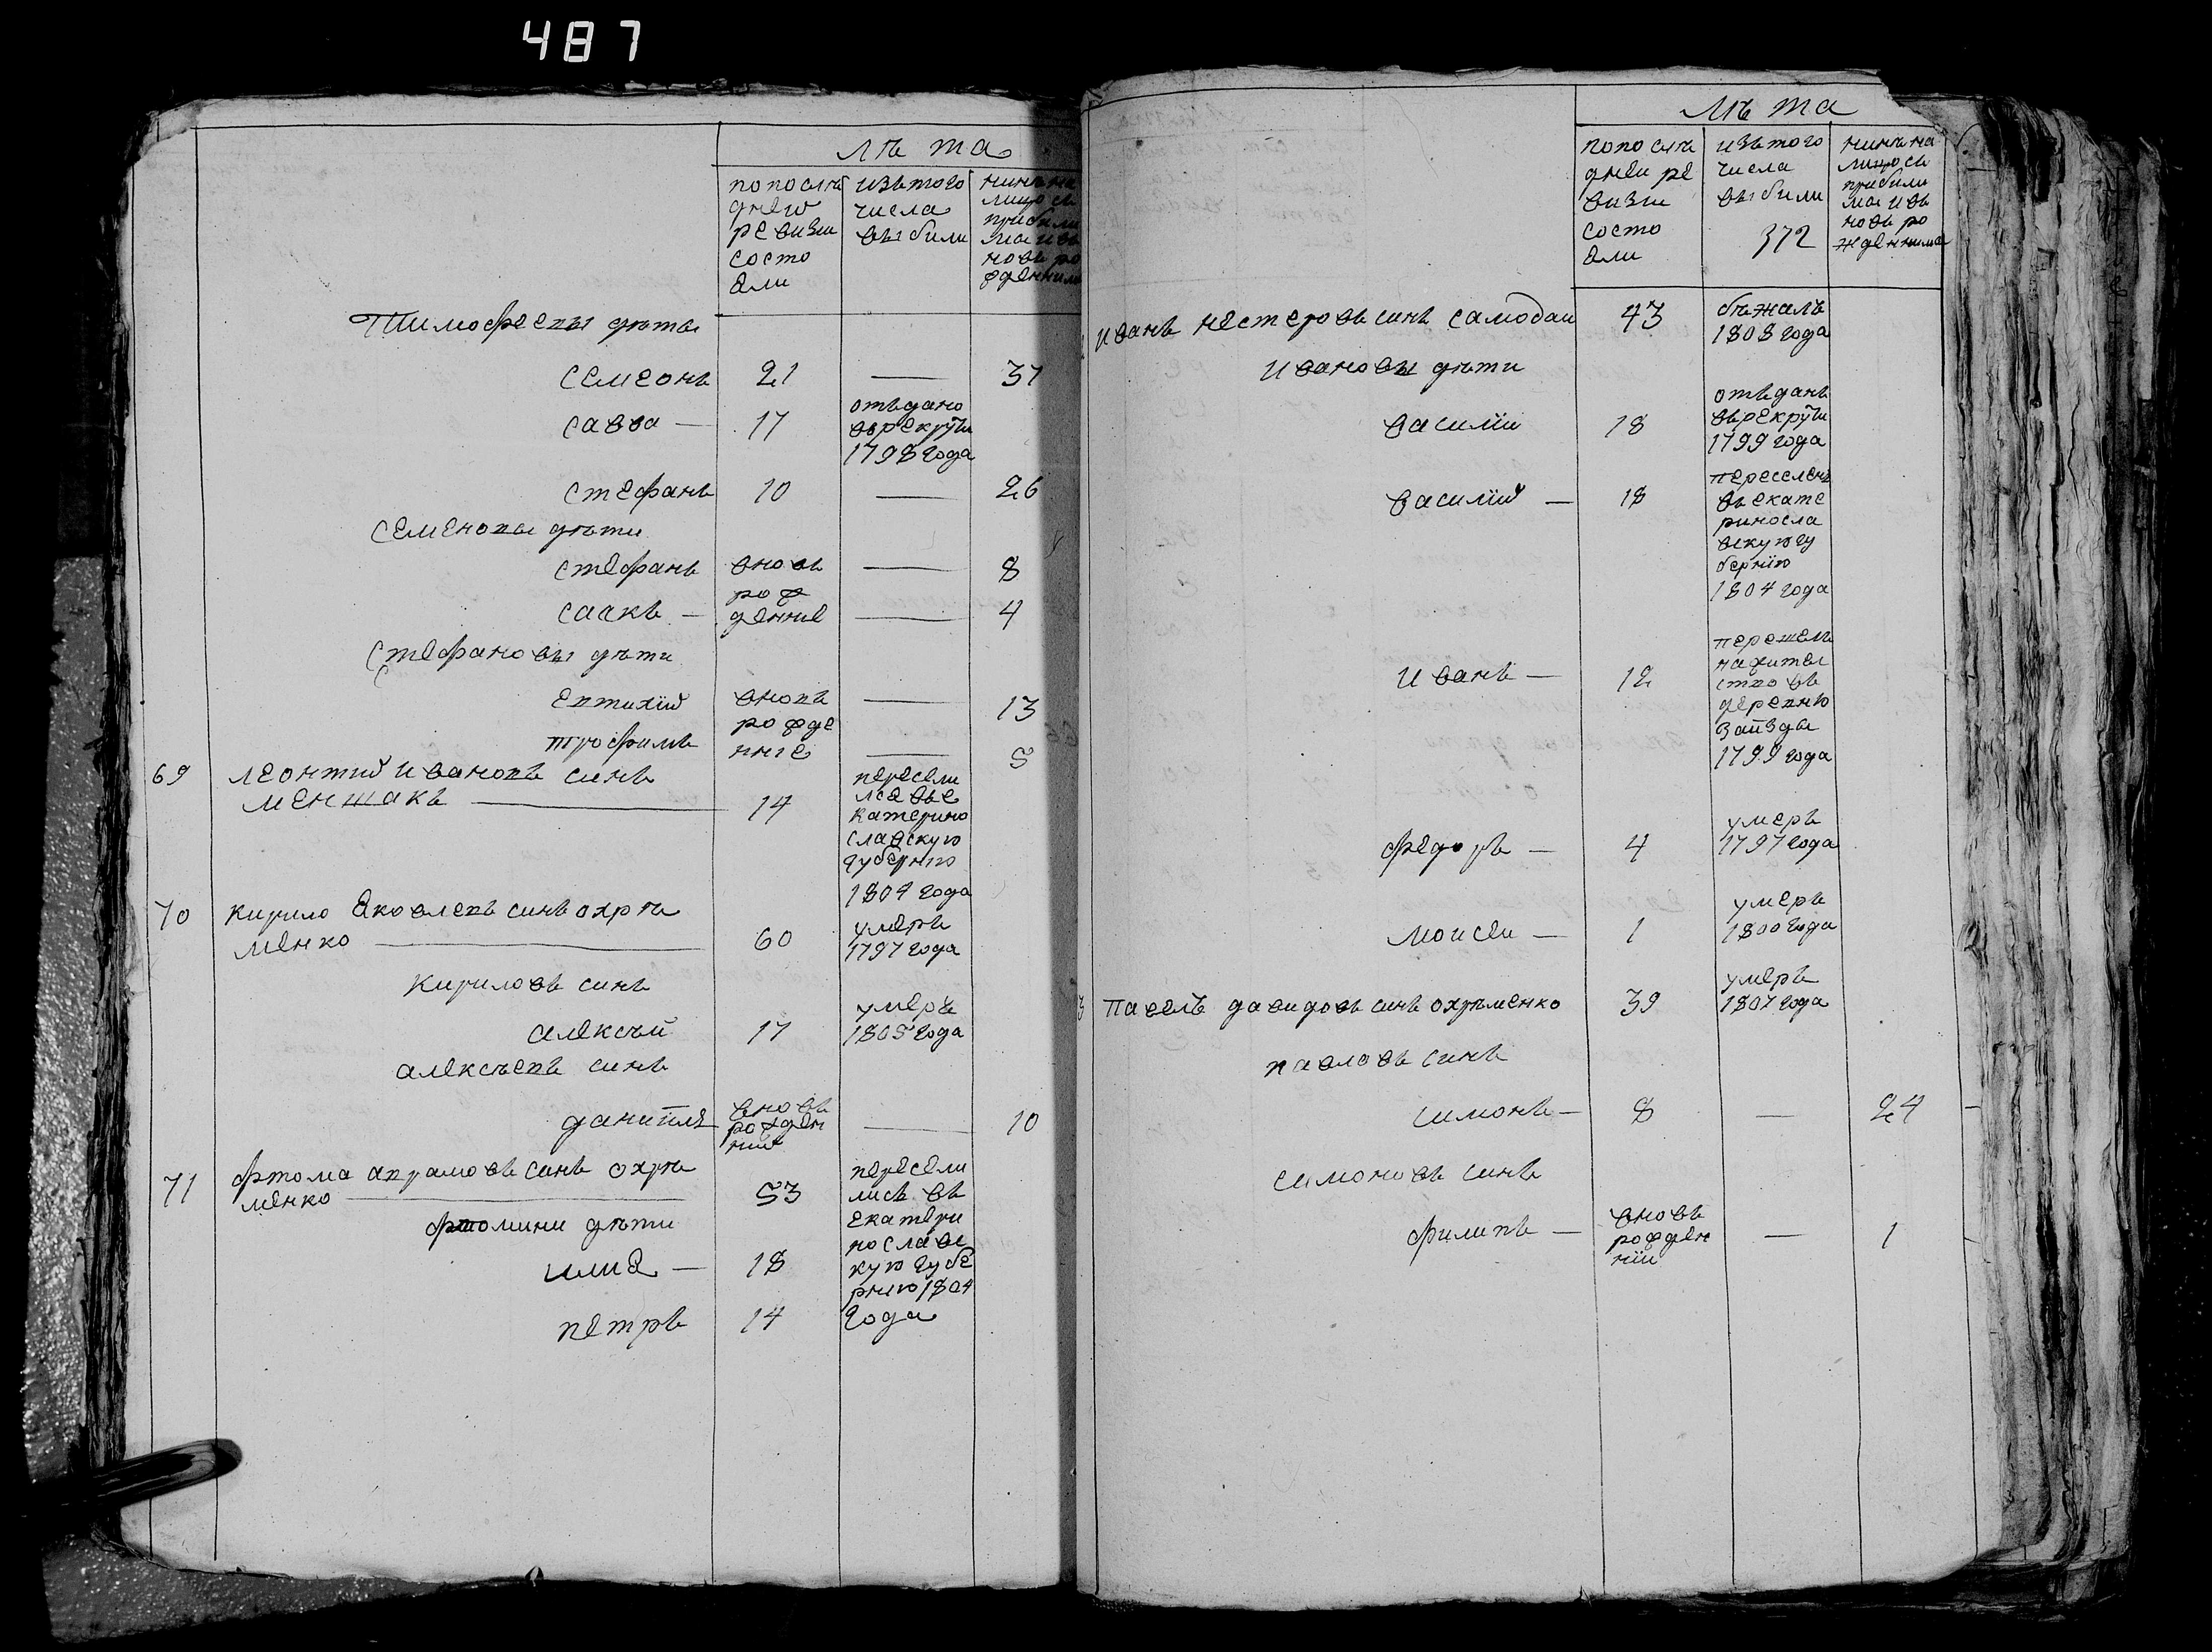 487
лѣта
попослѣ
днею
ревизи
состо
яли
изътого
числа
выбили
нинѣ на
лицось
прибили
ма и въ
новь ро
жденнима
Тимофеевы дѣты
семіонъ 21 — 31
савва — 17 отъдано
въ рекруты
1798 года
стефанъ 10 — 26
семеновы дѣти
стефанъ вновь — 8
рож
саакъ — денніе — 4
Стефановы дѣти
евтихій вновь — 13
рожде
трофимъ ніе — 5
69 леонтій ивановъ синъ
меншакъ — 14 пересели
лся въ е
катерино
славскую
губернію
1804 года
70 кирило яковлевъ синъ охрѣ
менко — 60 умеръ
1797 года
Кириловъ синъ
алексѣй 17 умеръ
1805 года
алексѣевъ синъ
даниїлъ вновь — 10
рожден
ній
71 фтома аврамовъ синъ охрѣ
менко — 53 пересели
лись въ
екатери
нославс
кую губе
рнию 1804
года
фтомини дѣти
илия — 18
петръ 14
лѣта
попослѣ
дней ре
визіи
состо
яли
изътого
числа
выбили
372
нинѣ на
лицось
прибили
ма и въ
новь ро
жденнима
иванъ нестеровъ синъ самодай 43 бѣжалъ
1808 года
Ивановы дѣти
василій 18 отъданъ
въ рекруты
1799 года
василій — 18 переселенъ
въ екате
риносла
вскую гу
бернію
1804 года
иванъ — 12 перешелъ
на жител
ство въ
деревню
заизды
1799 года
федоръ — 4 умеръ
1797 года
моисеи — 1 умеръ
1800 года
3 павелъ давидовъ синъ охрѣменко 39 умеръ
1807 года
павловъ синъ
симонъ — 8 — 24
симоновъ синъ
филипъ — вновь — 1
рожден
ній